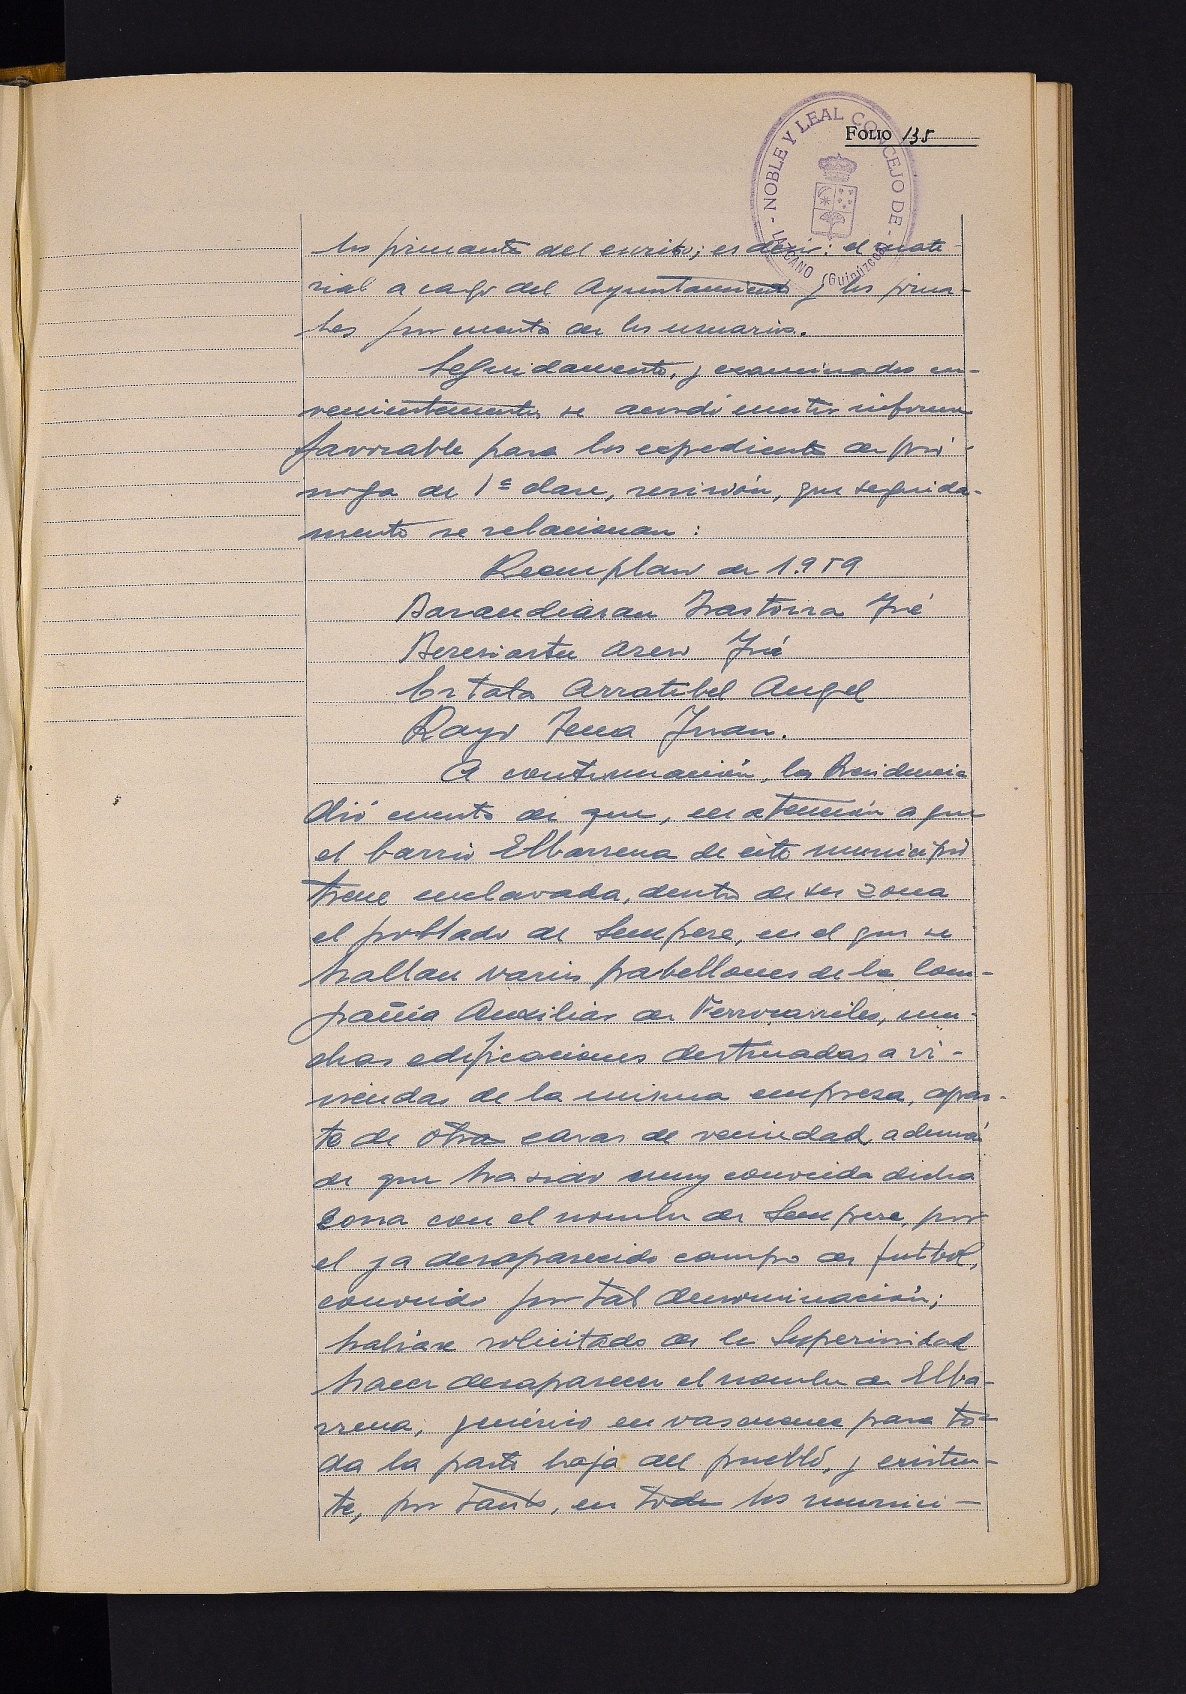 FOLIO 135
- NOBLE Y LEAL CONCEJO DE - LAZCANO (Guipúzcoa)
los firmantes del escrito; es decir: el mate-
rial a cargo del Ayuntamiento y los jorna-
les por cuenta de los usuarios.
Seguidamente, y examinados con-
venientemente, se acordó emitir informe
favorable para los expedientes de pró-
rroga de 1ª clase, revisión, que seguida-
mente se relacionan:
Reemplazo de 1.959
Barandiaran Irastorza José
Bereciartu José
Estala Arratibel Angel
Rayo Tena Juan.
A continuación, la Presidencia
dió cuenta de que, en atención a que
el barrio Elbarrena de este municipio
tiene enclavada, dentro de su zona
el poblado de Sempere, en el que se
hallan varios pabellones de la Com-
pañia Auxiliar de Ferrocarriles, mu-
chas edificaciones destinadas a vi-
viendas de la misma empresa, apar-
te de otras casas de vecindad, además
de que ha sido muy conocida dicha
zona con el nombre de Sempere, por
el ya desaparecido campo de futbol,
conocido por tal denominación;
habíase solicitado de la Superioridad
hacer desaparecer el nombre de Elba-
rrena, genérico en vascuence para to-
da la parte baja del pueblo, y existen-
te, por tanto, en todos los munici-